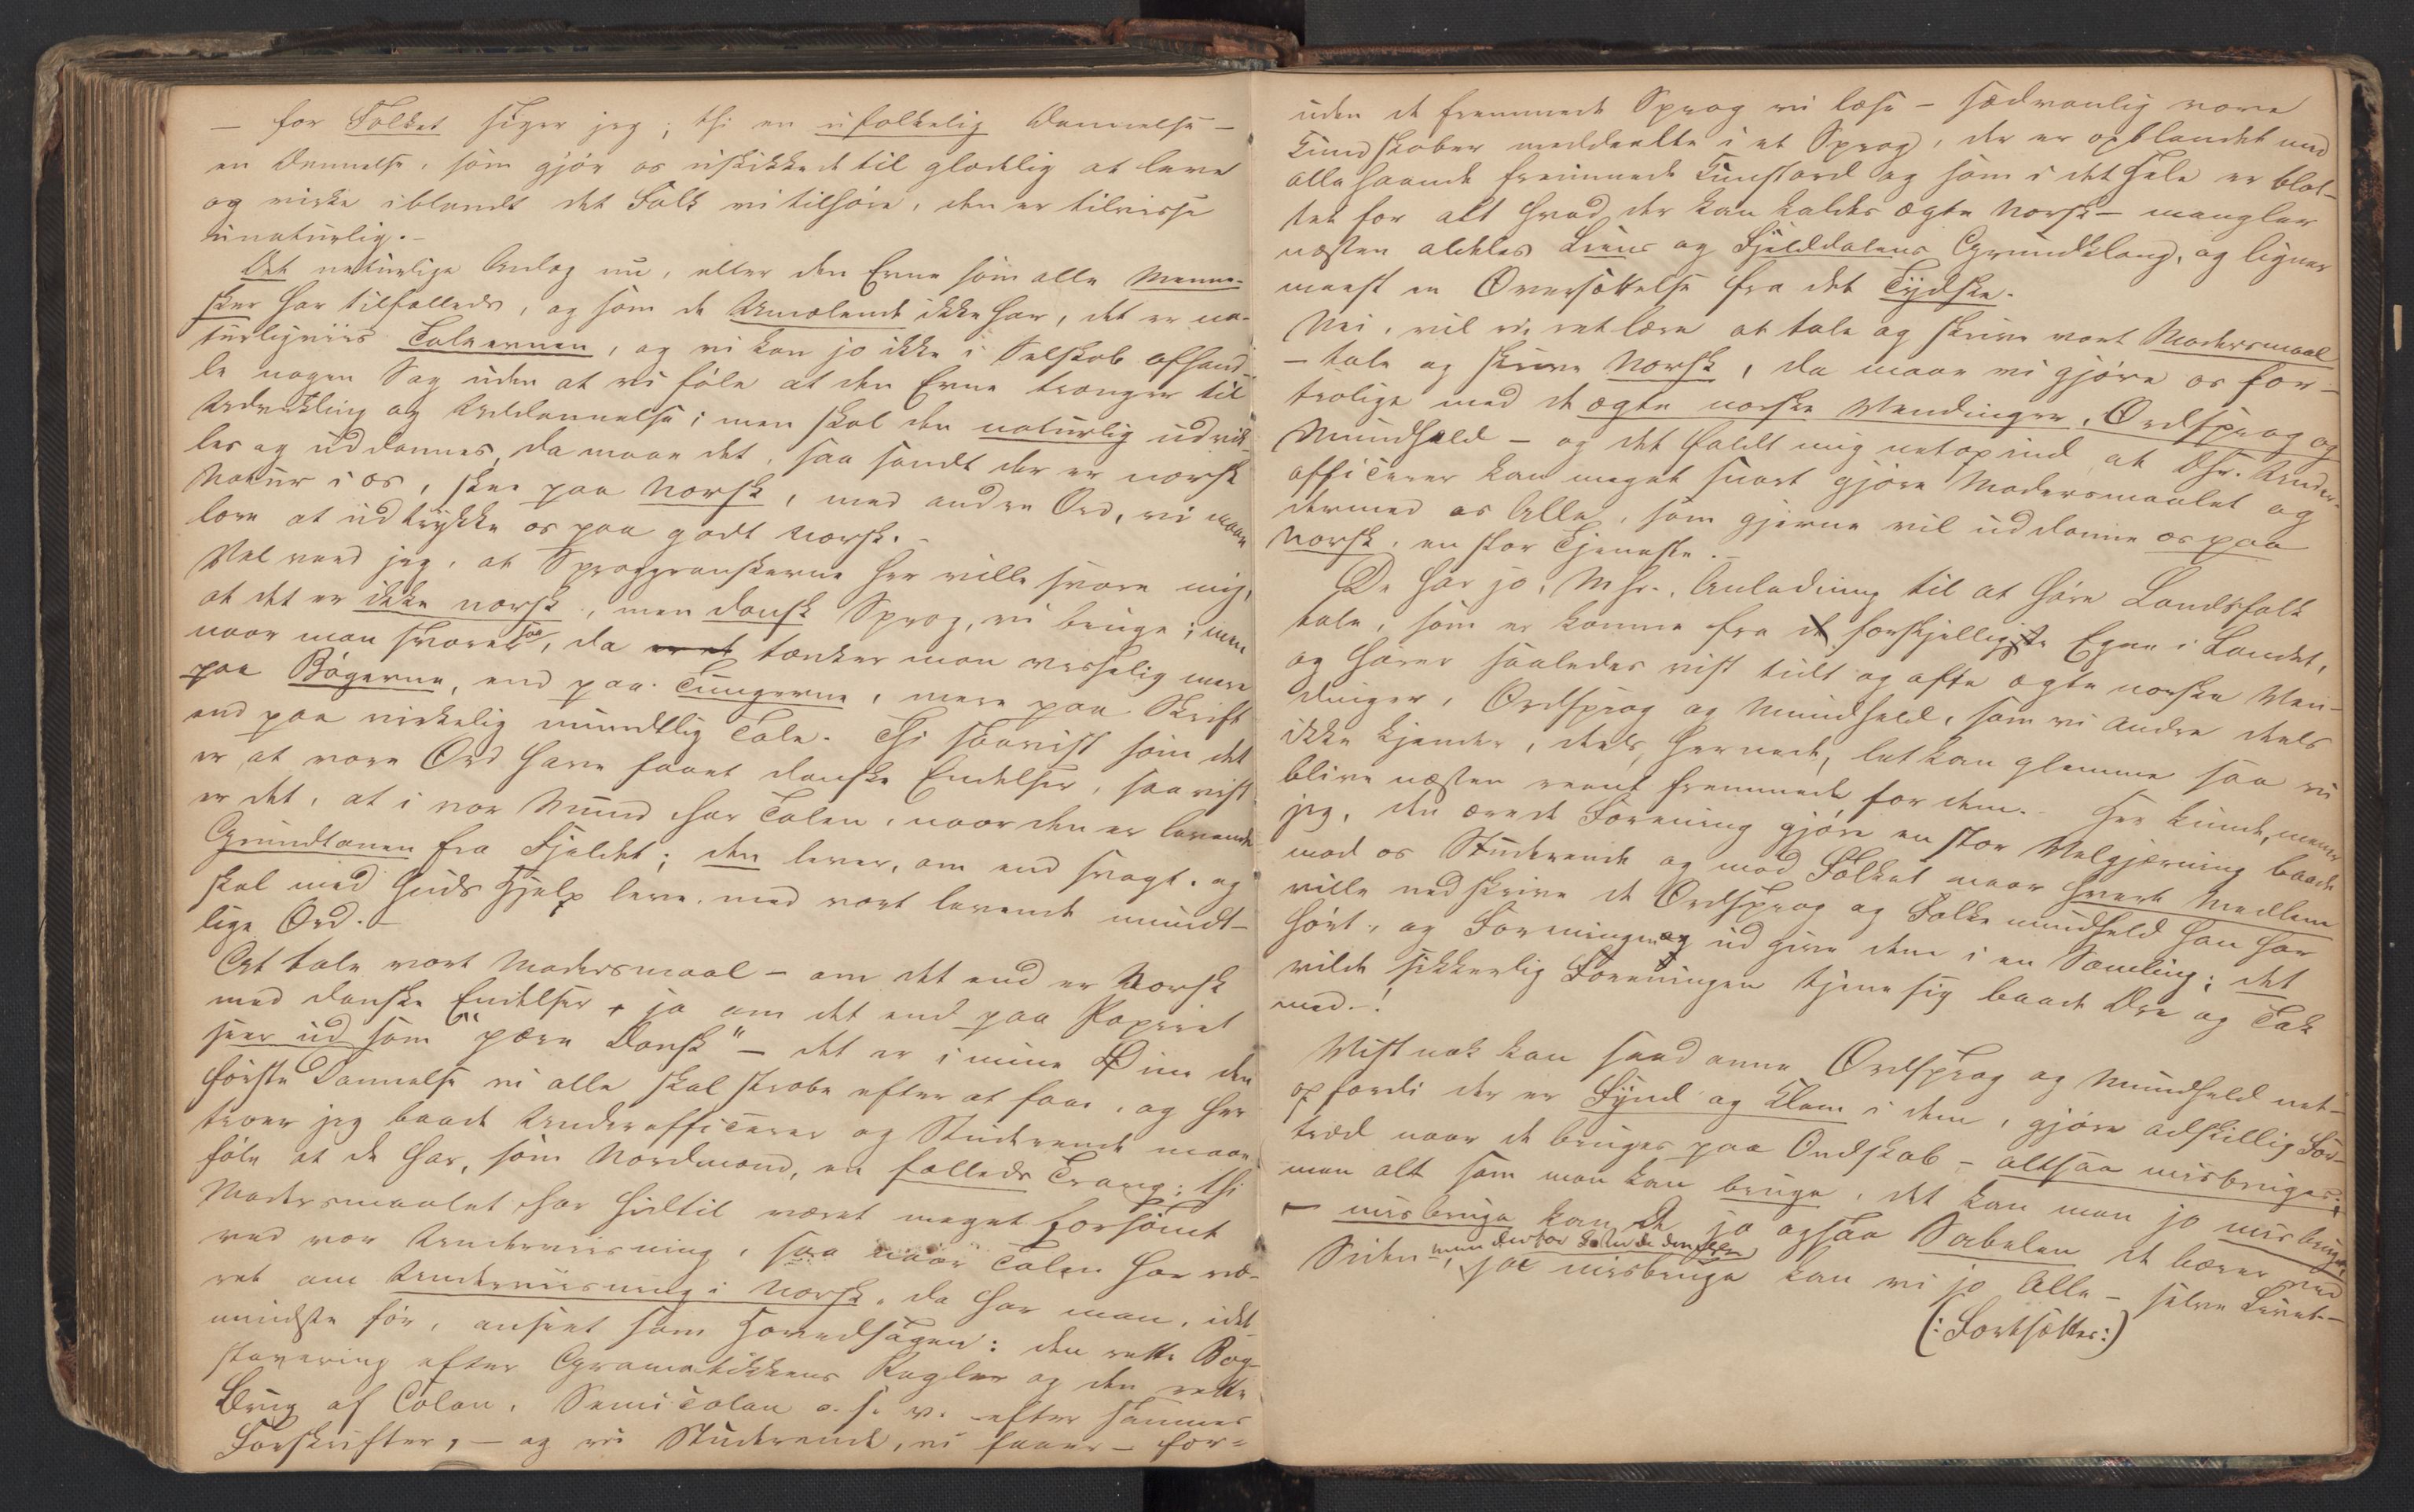 — for Folket siger jeg; thi en ufolkelig Dannelse —
en Dannelse, som gjör os uskikkede til glædelig at leve
og virke iblandt det Folk vi tilhöre, den er tilvisse
unaturlig. —
Det naturlige Anlæg nu, eller den Evne som alle Menne-
sker har tilfælleds, og som de Umælende ikke har, det er na-
turligviis Taleevnen, og vi kan jo ikke i Selskab afhand-
le nogen Sag uden at vi föle at den Evne trænger til
Udvikling og Uddannelse; men skal den naturlig udvik-
les og uddannes, da maae det, saa sandt der er norsk
Natur i os, skee paa Norsk, med andre Ord, vi maae
lære at udtrykke os paa godt Norsk. —
Vel veed jeg, at Sproggranskerne her ville svare mig,
at det er ikke norsk, men dansk Sprog, vi bruge; men
naar man svarer saa, da er et tænker man visselig mere
paa Bögerne, end paa Tungerne, mere paa Skrift
end paa virkelig mundtlig Tale. Thi saavist som det
er, at vore Ord have faaet danske Endelser, saa vist
er det, at i vor Mund har Talen, naar den er levende
Grundtonen fra Fjeldet; den lever, om end svagt, og
skal med Guds Hjelp leve, med vort levende mundt-
lige Ord. —
At tale vort Modersmaal — om det end er Norsk
med danske Endelser, ja om det end paa Papiret
seer ud som "pære Dansk" — det er i mine Öine den
förste Dannelse vi alle skal stræbe efter at faae, og her
troer jeg baade Underofficerer og Studerende maae
föle at de har, som Nordmænd, en fælleds Trang; thi
Modersmaalet har hidtil været meget forsömt
ved vor Underviisning, saa naar Talen har væ-
ret om Underviisning i Norsk, da har man, idet-
mindste för, anseet som Hovedsagen: den rette Bog-
stavering efter Gramatikkens Regler og den rette
Brug af Colon, Semicolon o. s. v. efter sammes
Forskrifter, — og vi Studerende, vi faaer — for-
uden de fremmede Sprog vi læse — sædvanlig vore
Kundskaber meddeelte i et Sprog, der er opblandet med
allehaande fremmede Kunstord og som i det Hele er blot-
tet for alt hvad der kan kaldes ægte Norsk — mangler
næsten aldeles Liens og Fjelddalens Grundklang, og ligner
meest en Oversættelse fra det Tydske.
Nei, vil vi ret lære at tale og skrive vort Modersmaal
— tale og skrive Norsk, da maae vi gjöre os for-
trolige med de ægte norske Vendinger, Ordsprog og
Mundheld — og det faldt mig netop ind at Dhr. Under-
officerer kan meget snart gjöre Modersmaalet og
dermed os Alle, som gjerne vil uddanne os paa
Norsk, en stor Tjeneste. —
De har jo, M Hr., Anledning til at höre Landsfolk
tale, som er komne fra de forskjelligste Egne i Landet,
og hörer saaledes vist tidt og ofte ægte norske Ven-
dinger, Ordsprog og Mundheld, som vi andre deels
ikke kjender, deels, hernede, let kan glemme saa vi
blive næsten reent fremmede for dem. — Her kunde, mener
jeg, den ærede Forening gjöre en stor Velgjerning baade
mod os Studerende og mod Folket naar hvert Medlem
ville nedskrive de Ordsprog og Folkemundheld han har
hört, og Foreningen udgive dem i en Samling; det
vilde sikkerlig Foreningen tjene sig baade Ære og Tak
med. —!
Vistnok kan saadanne Ordsprog og Mundheld net-
op fordi der er Fynd og Klem i dem, gjöre adskillig For-
træd naar de bruges paa Ondskab — altsaa misbruges;
men alt som man kan bruge, det kan man jo misbruge,
— misbruge kan De jo ogsaa Sabelen De bærer ved
Siden —, men derfor beholde De den, ja misbruge kan vi jo Alle — selve Livet. —
(: Fortsættes :)